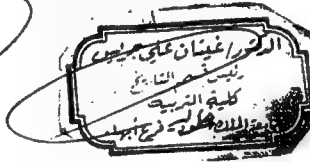 الدكتور/غيثان علي جريس
رئيس قسم التاريخ
كلية التربية
جامعة الملك سعود فرع أبها